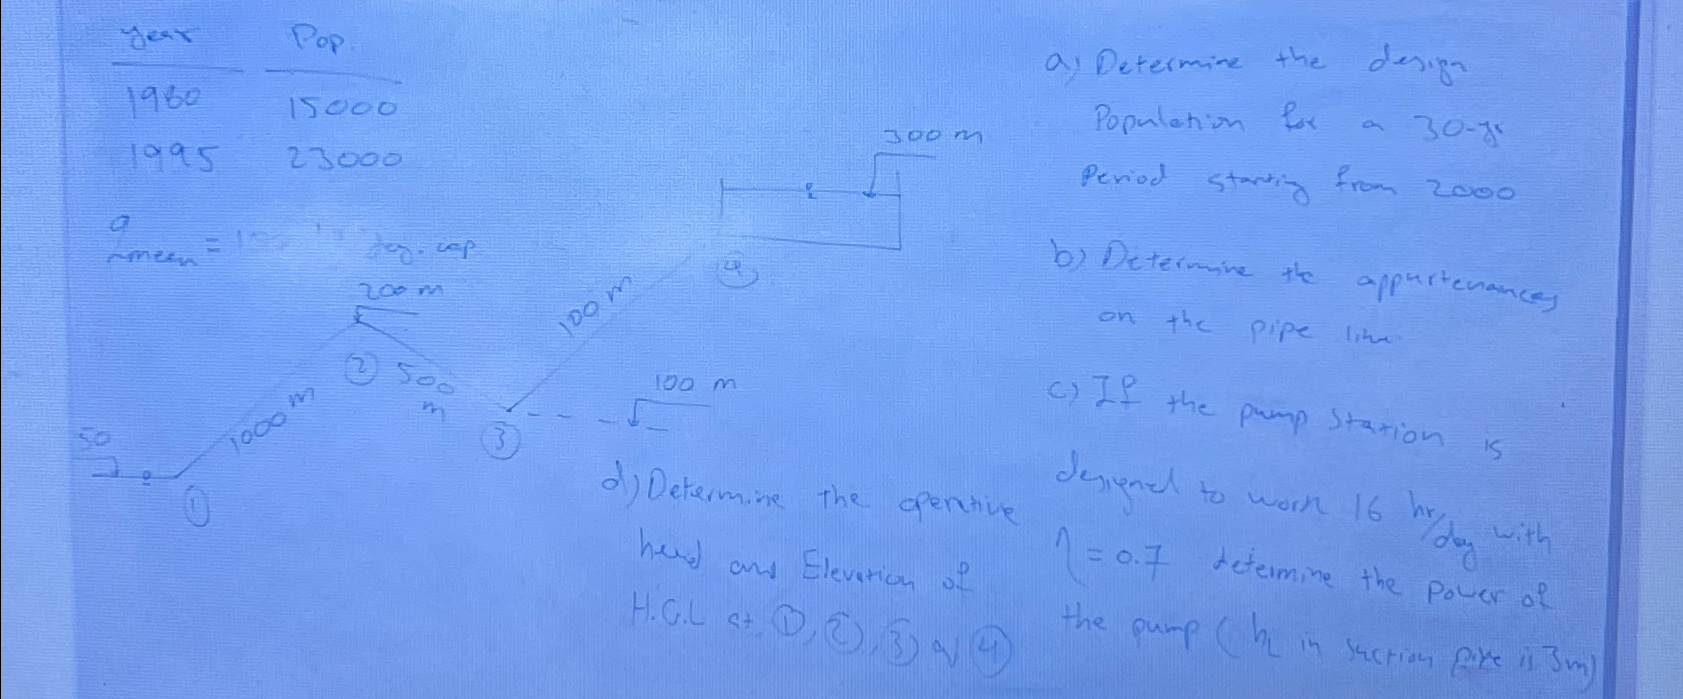 year Pop.
1980 15000
1995 23000
q mean = 1 day. cap
200 m
300 m
1000 m
2
500 m
100 m
4
50
1
3
100 m
a) Determine the design
Population for a 30-yr
Period starting from 2000
b) Determine the appurtenances
on the pipe line.
c) If the pump station is
designed to work 16 hr/day with
η = 0.7 determine the power of
the pump (hL in suction pipe is 3m)
d) Determine the operative
head and Elevation of
H.G.L at 1, 2, 3 & 4